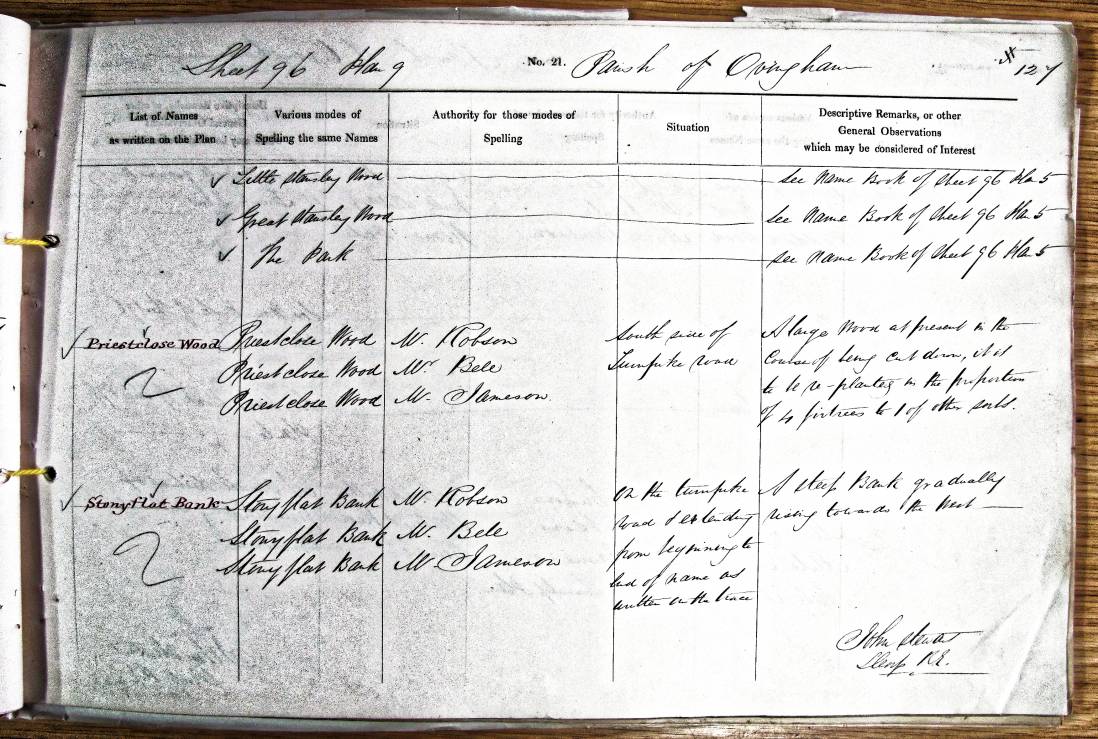 Sheet 96 Plan 9 No. 21. Parish of Ovingham 127
List of Names
as written on the Plan
Various modes of
Spelling the same Names
Authority for those modes of
Spelling
Situation
Descriptive Remarks, or other
General Observations
which may be considered of Interest
Little Wood see Name Book of Sheet 96 Pla 5
Great Wood see Name Book of Sheet 96 Pla 5
The Park see Name Book of Sheet 96 Pla 5
Priestclose Wood
Priestclose Wood
Priestclose Wood
Priestclose Wood
Mr. Robson
Mr Bele
Mr. Jameson
South side of
Turnpike road
A large Wood at present in the
course of being cut down, it is
to be re-planted in the proportion
of 4 firtrees to 1 of other sorts.
Stonyflat Bank
Stonyflat Bank
Stonyflat Bank
Stonyflat Bank
Mr. Robson
Mr. Bele
Mr. Jameson
On the turnpike
road & extending
from beginning to
end of name as
written on the trace
A steep Bank gradually
rising towards the West
John
R.E.